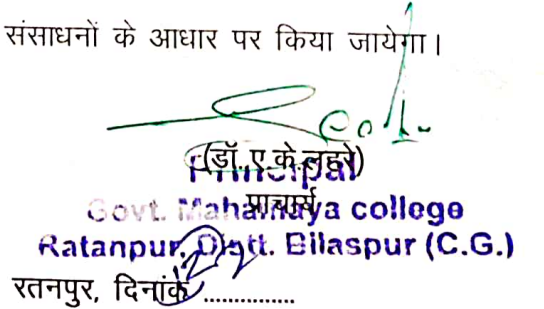 संसाधनों के आधार पर किया जायेगा।
(डॉ. ए के लहरे)
Principal
प्राचार्य
Govt. Mahamaya college
Ratanpur, Distt. Bilaspur (C.G.)
रतनपुर, दिनांक ...............